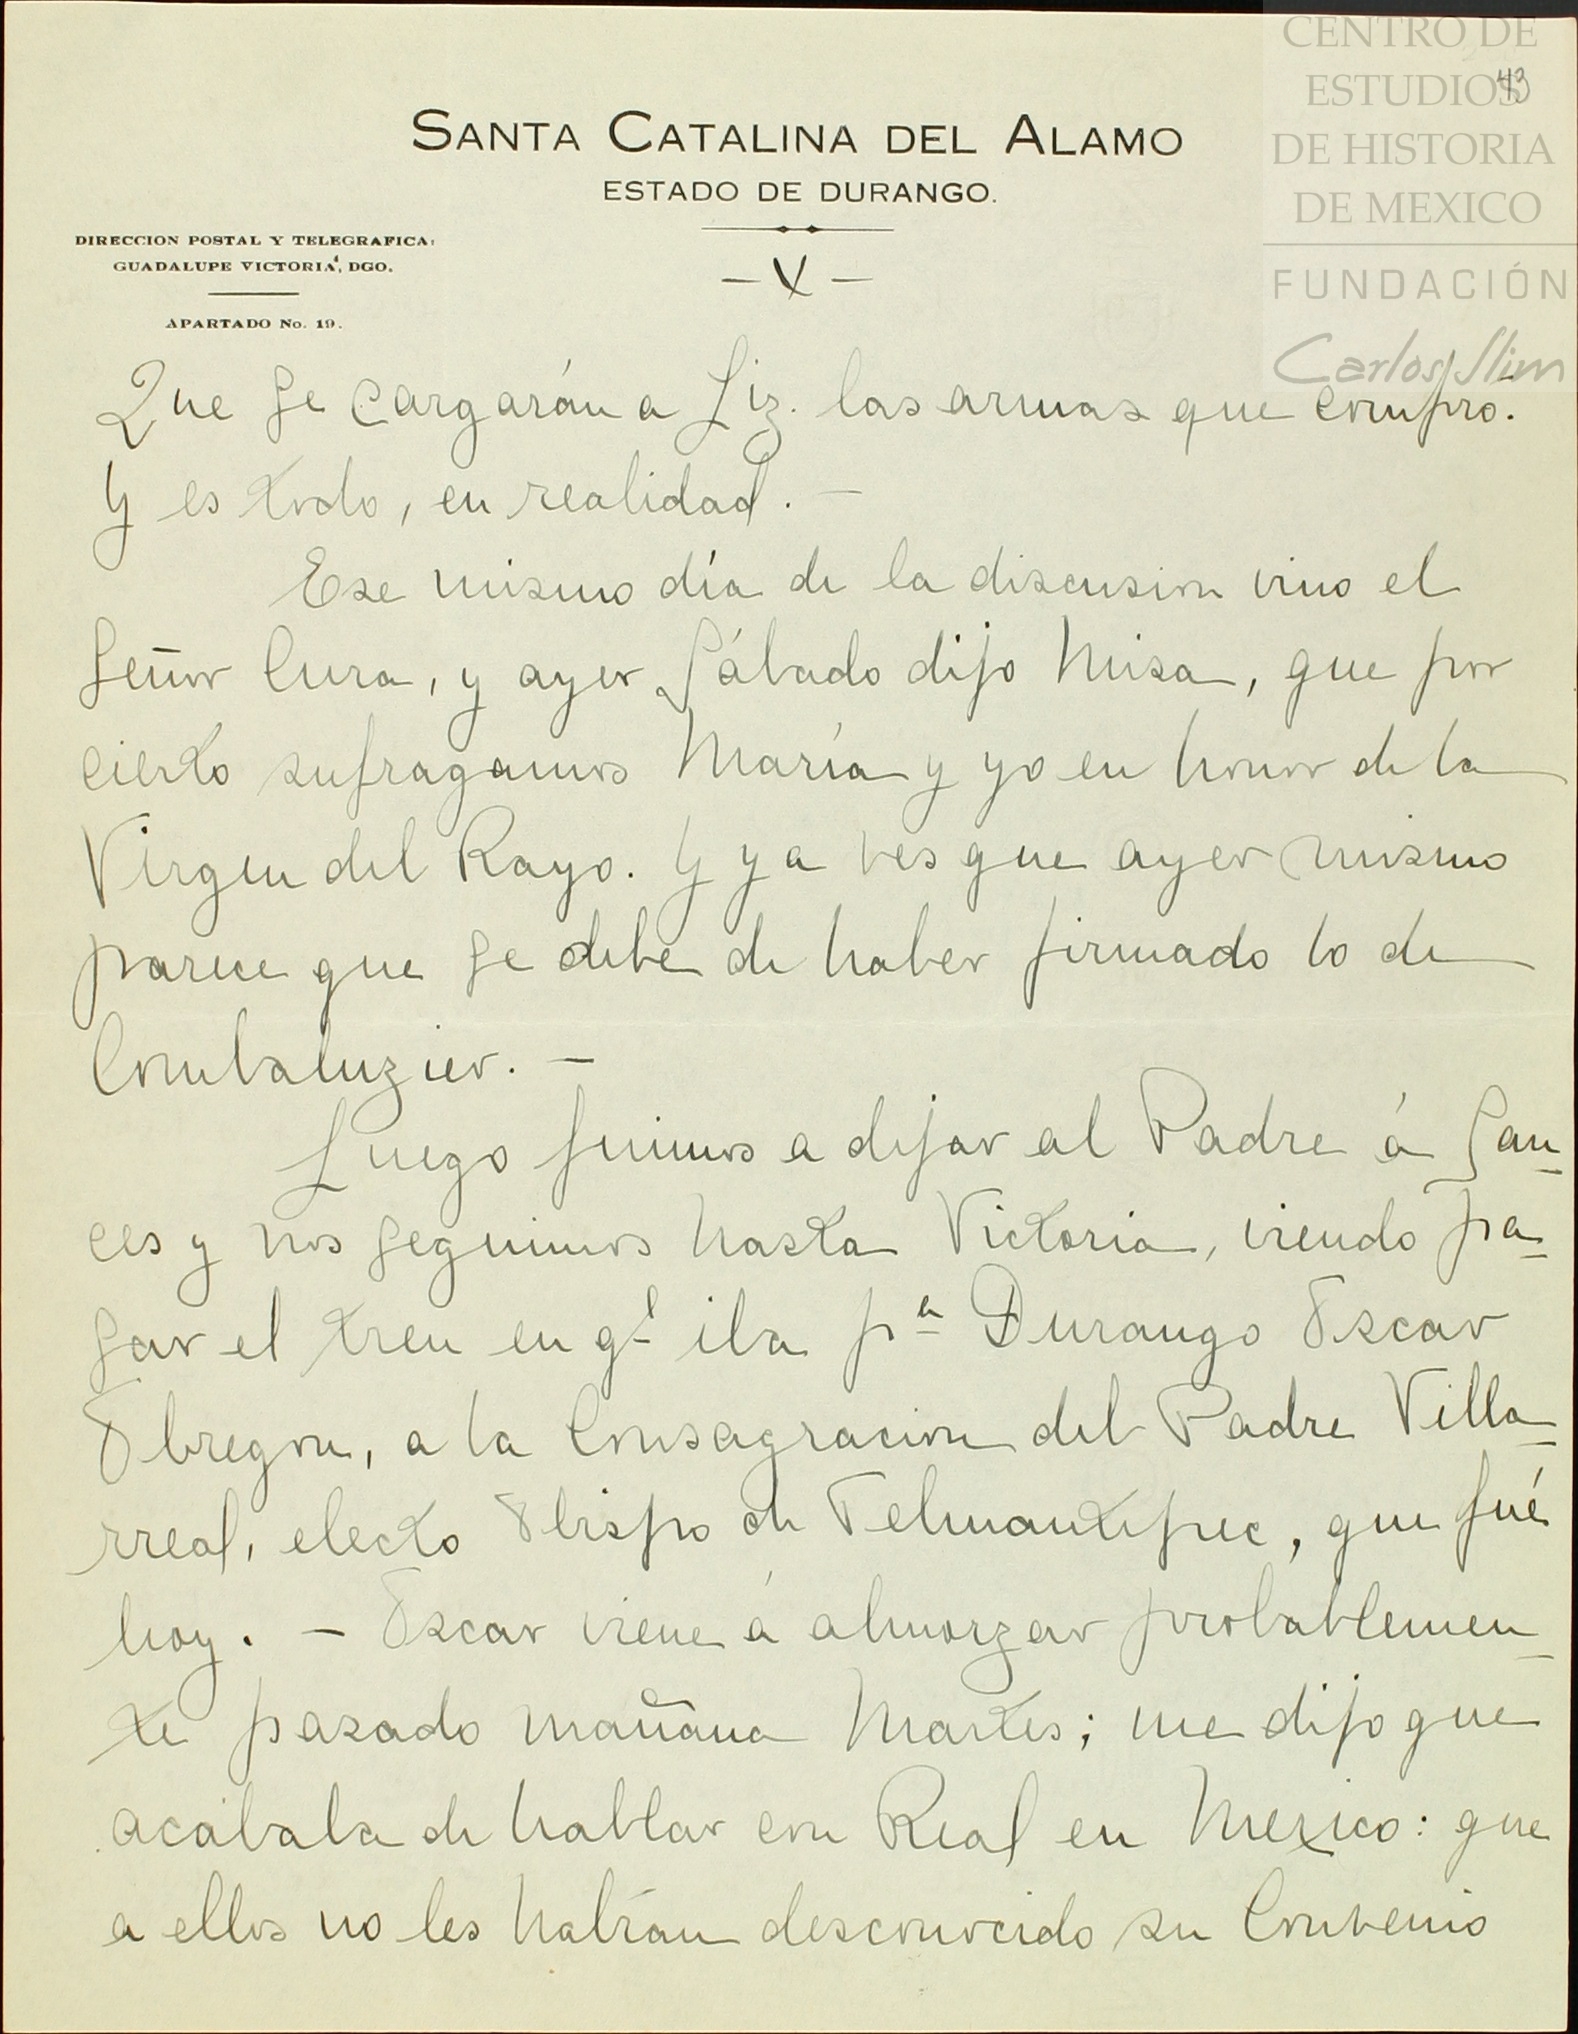 CENTRO DE
ESTUDIOS
DE HISTORIA
DE MEXICO
FUNDACIÓN
Carlos Slim
43
SANTA CATALINA DEL ALAMO
ESTADO DE DURANGO.
DIRECCION POSTAL Y TELEGRAFICA:
GUADALUPE VICTORIA, DGO.
APARTADO No. 19.
- V -
Que se cargarán a Liz. las armas que compró.
Y es todo, en realidad. -
Ese mismo día de la discusion vino el
Señor Cura, y ayer Sábado dijo Misa, que por
cierto sufragamos María y yo en honor de la
Virgen del Rayo. Y ya ves que ayer mismo
parece que se debe de haber firmado lo de
Combaluzier. -
Luego fuimos a dejar al Padre á Sau-
ces y nos seguimos hasta Victoria, viendo pa-
sar el tren en ql iba pa Durango Oscar
Obregon, a la Consagracion del Padre Villa-
rreal, electo Obispo de Tehuantepec, que fué
hoy. - Oscar viene á almorzar probablemen-
te pasado mañana Martes; me dijo que
acababa de hablar con Real en Mexico: que
a ellos no les habían desconocido su Convenio